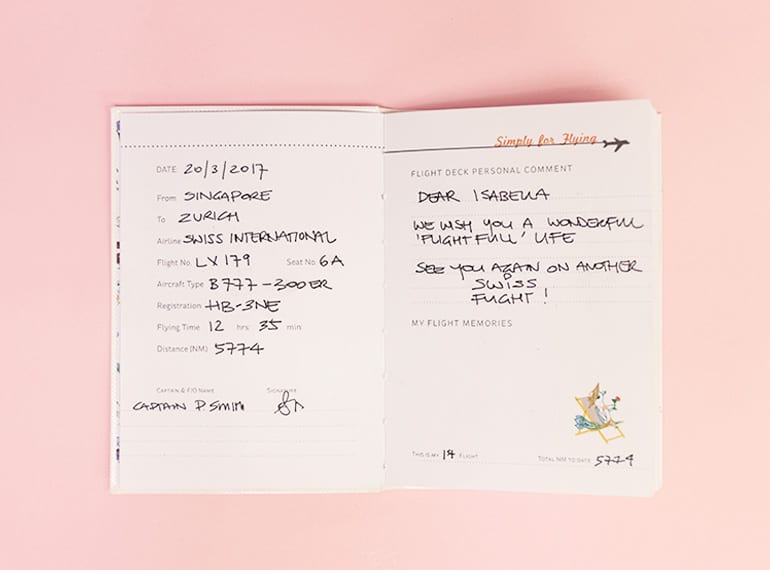 DATE 20/3/2017
From SINGAPORE
To ZURICH
Airline SWISS INTERNATIONAL
Flight No. LX 179 Seat No. 6A
Aircraft Type B777-300ER
Registration HB-JNE
Flying Time 12 hrs 35 min
Distance (NM) 5774
CAPTAIN & F/O NAME SIGNATURE
CAPTAIN P SMITH
Simply for Flying
FLIGHT DECK PERSONAL COMMENT
DEAR ISABELLA
WE WISH YOU A WONDERFUL
'FLIGHTFULL' LIFE
SEE YOU AGAIN ON ANOTHER
SWISS
FLIGHT!
MY FLIGHT MEMORIES
THIS IS MY FLIGHT TOTAL NM TO DATE 5774